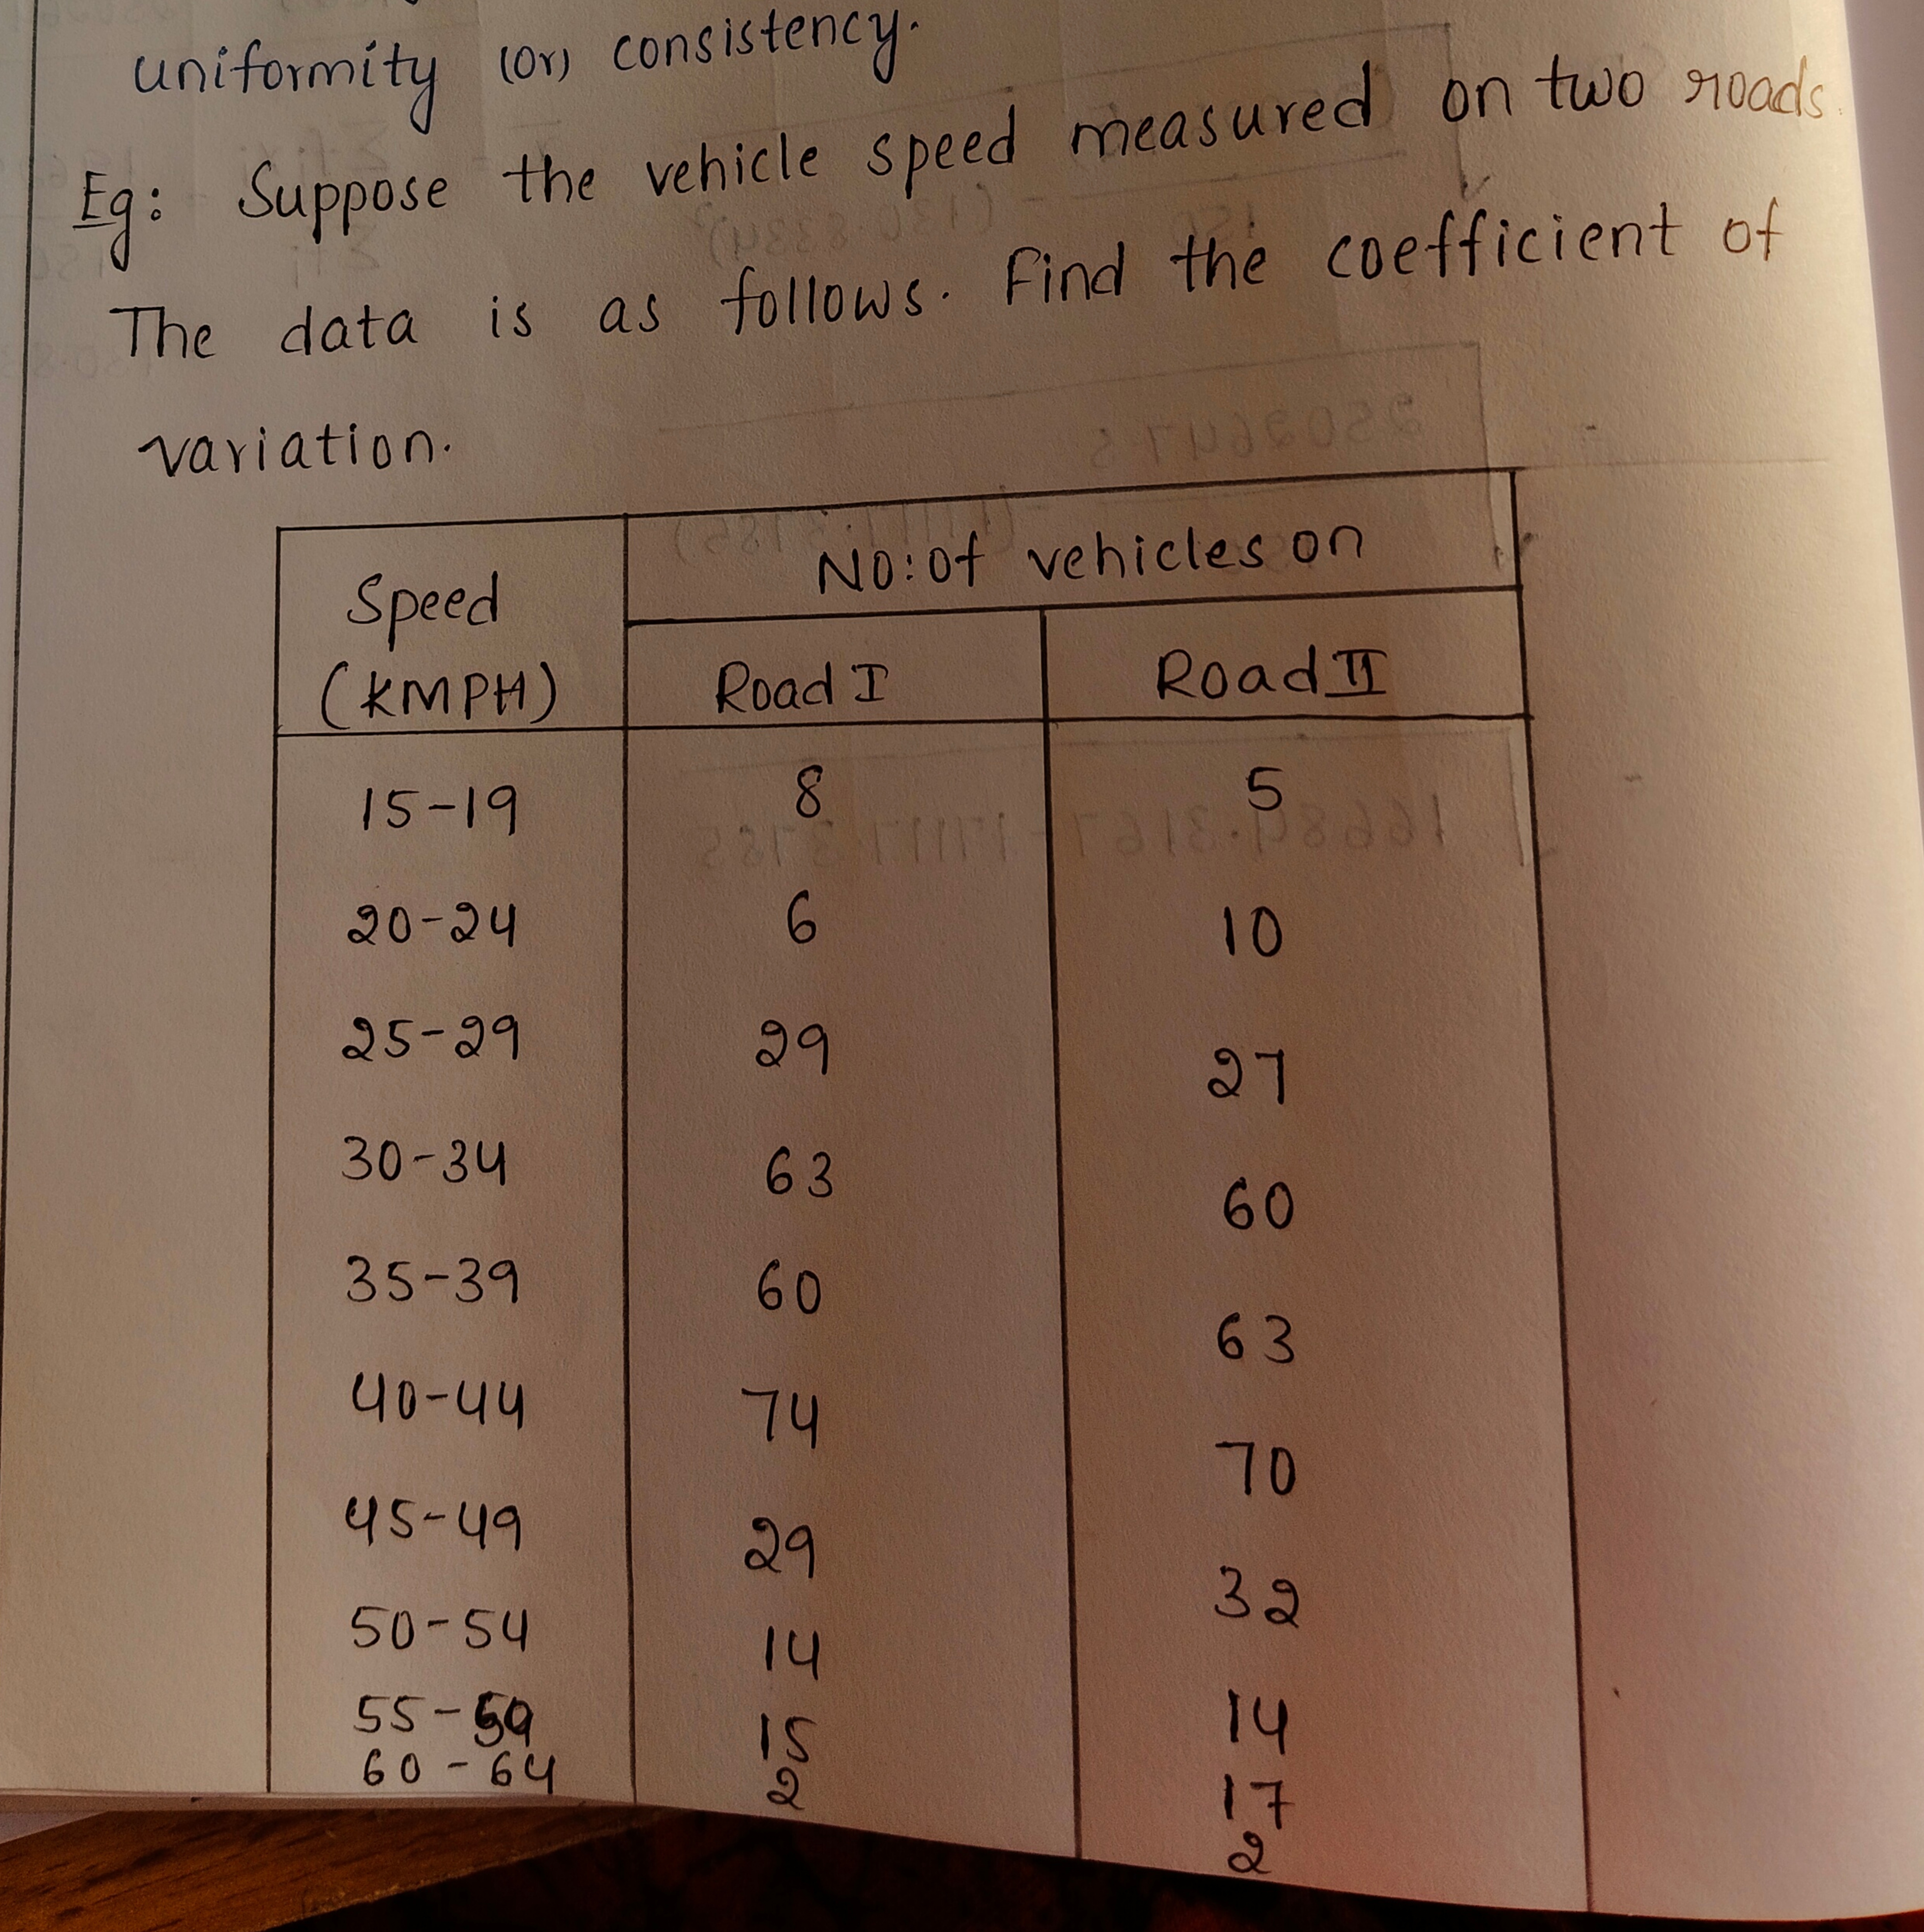 uniformity (or) consistency.
Eg: Suppose the vehicle speed measured on two roads.
The data is as follows. Find the coefficient of
variation.
Speed (KMPH) No: of vehicles on
Road I Road II
15-19 8 5
20-24 6 10
25-29 29 27
30-34 63 60
35-39 60 63
40-44 74 70
45-49 29 32
50-54 14 14
55-59 15 17
60-64 2 2